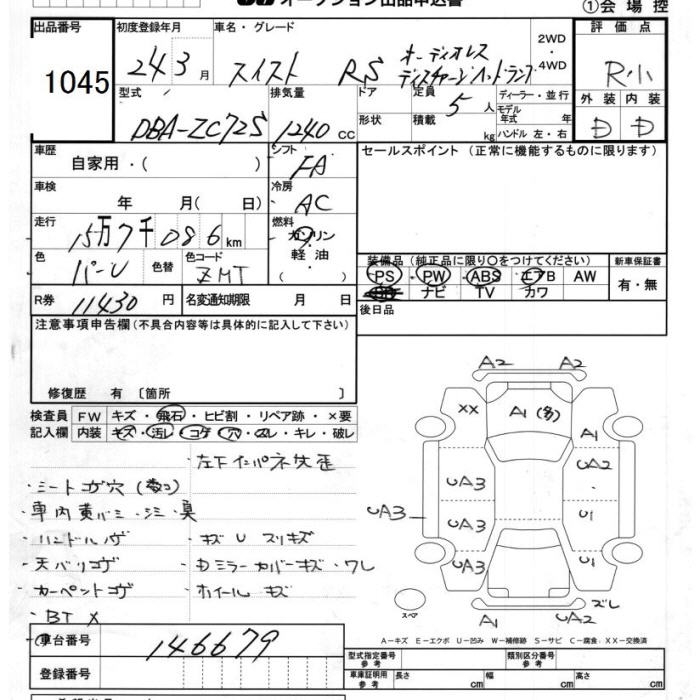 オークション出品申込書 ①会場控
出品番号 初度登録年月 車名・グレード 2WD・4WD 評価点
1045 24 3月 スイスト RS オーディオレス ディスチャージヘッドランプ R小
型式 排気量 ドア 定員 5人 ディーラー・並行 外装 内装
DBA-ZC72S 1240cc 形状 積載 kg モデル年式 年 ハンドル 左・右 D D
車歴 自家用・( ) シフト FA セールスポイント (正常に機能するものに限ります)
車検 年 月( 日) 冷房 AC
走行 15万7千086km 燃料 ガソリン 軽油 ( )
色 パール 色替 色コード ZMT
装備品 (純正品に限り○をつけてください) 新車保証書
PS PW ABS エアB AW 有・無
ナビ TV カワ
R券 11430円 名変通知期限 月 日 後日品
注意事項申告欄(不具合内容等は具体的に記入して下さい)
修復歴 有 〔箇所 〕
検査員記入欄 FW キズ・飛石・ヒビ割・リペア跡・×要
内装 キズ・汚レ・コゲ・穴・スレ・キレ・破レ
・左下インパネ先歪
・シートコゲ穴(数コ)
・車内黄バミ・シミ・臭
・ハンドルハゲ ・キズ U スリキズ
・天バリコゲ ・カミラーカバーキズ・ワレ
・カーペントコゲ ・ホイールキズ
・BT X
車台番号 146679
登録番号
A2 A2
XX A1(多) A1
UA3 UA2
UA3 UA3 U1
UA3 U1
スペア A1 UA2 ズレ
A-キズ E-エクボ U-凹み W-補修跡 S-サビ C-腐食 XX-交換済
型式指定番号 参考 類別区分番号 参考
車庫証明用 参考 長さ cm 幅 cm 高さ cm